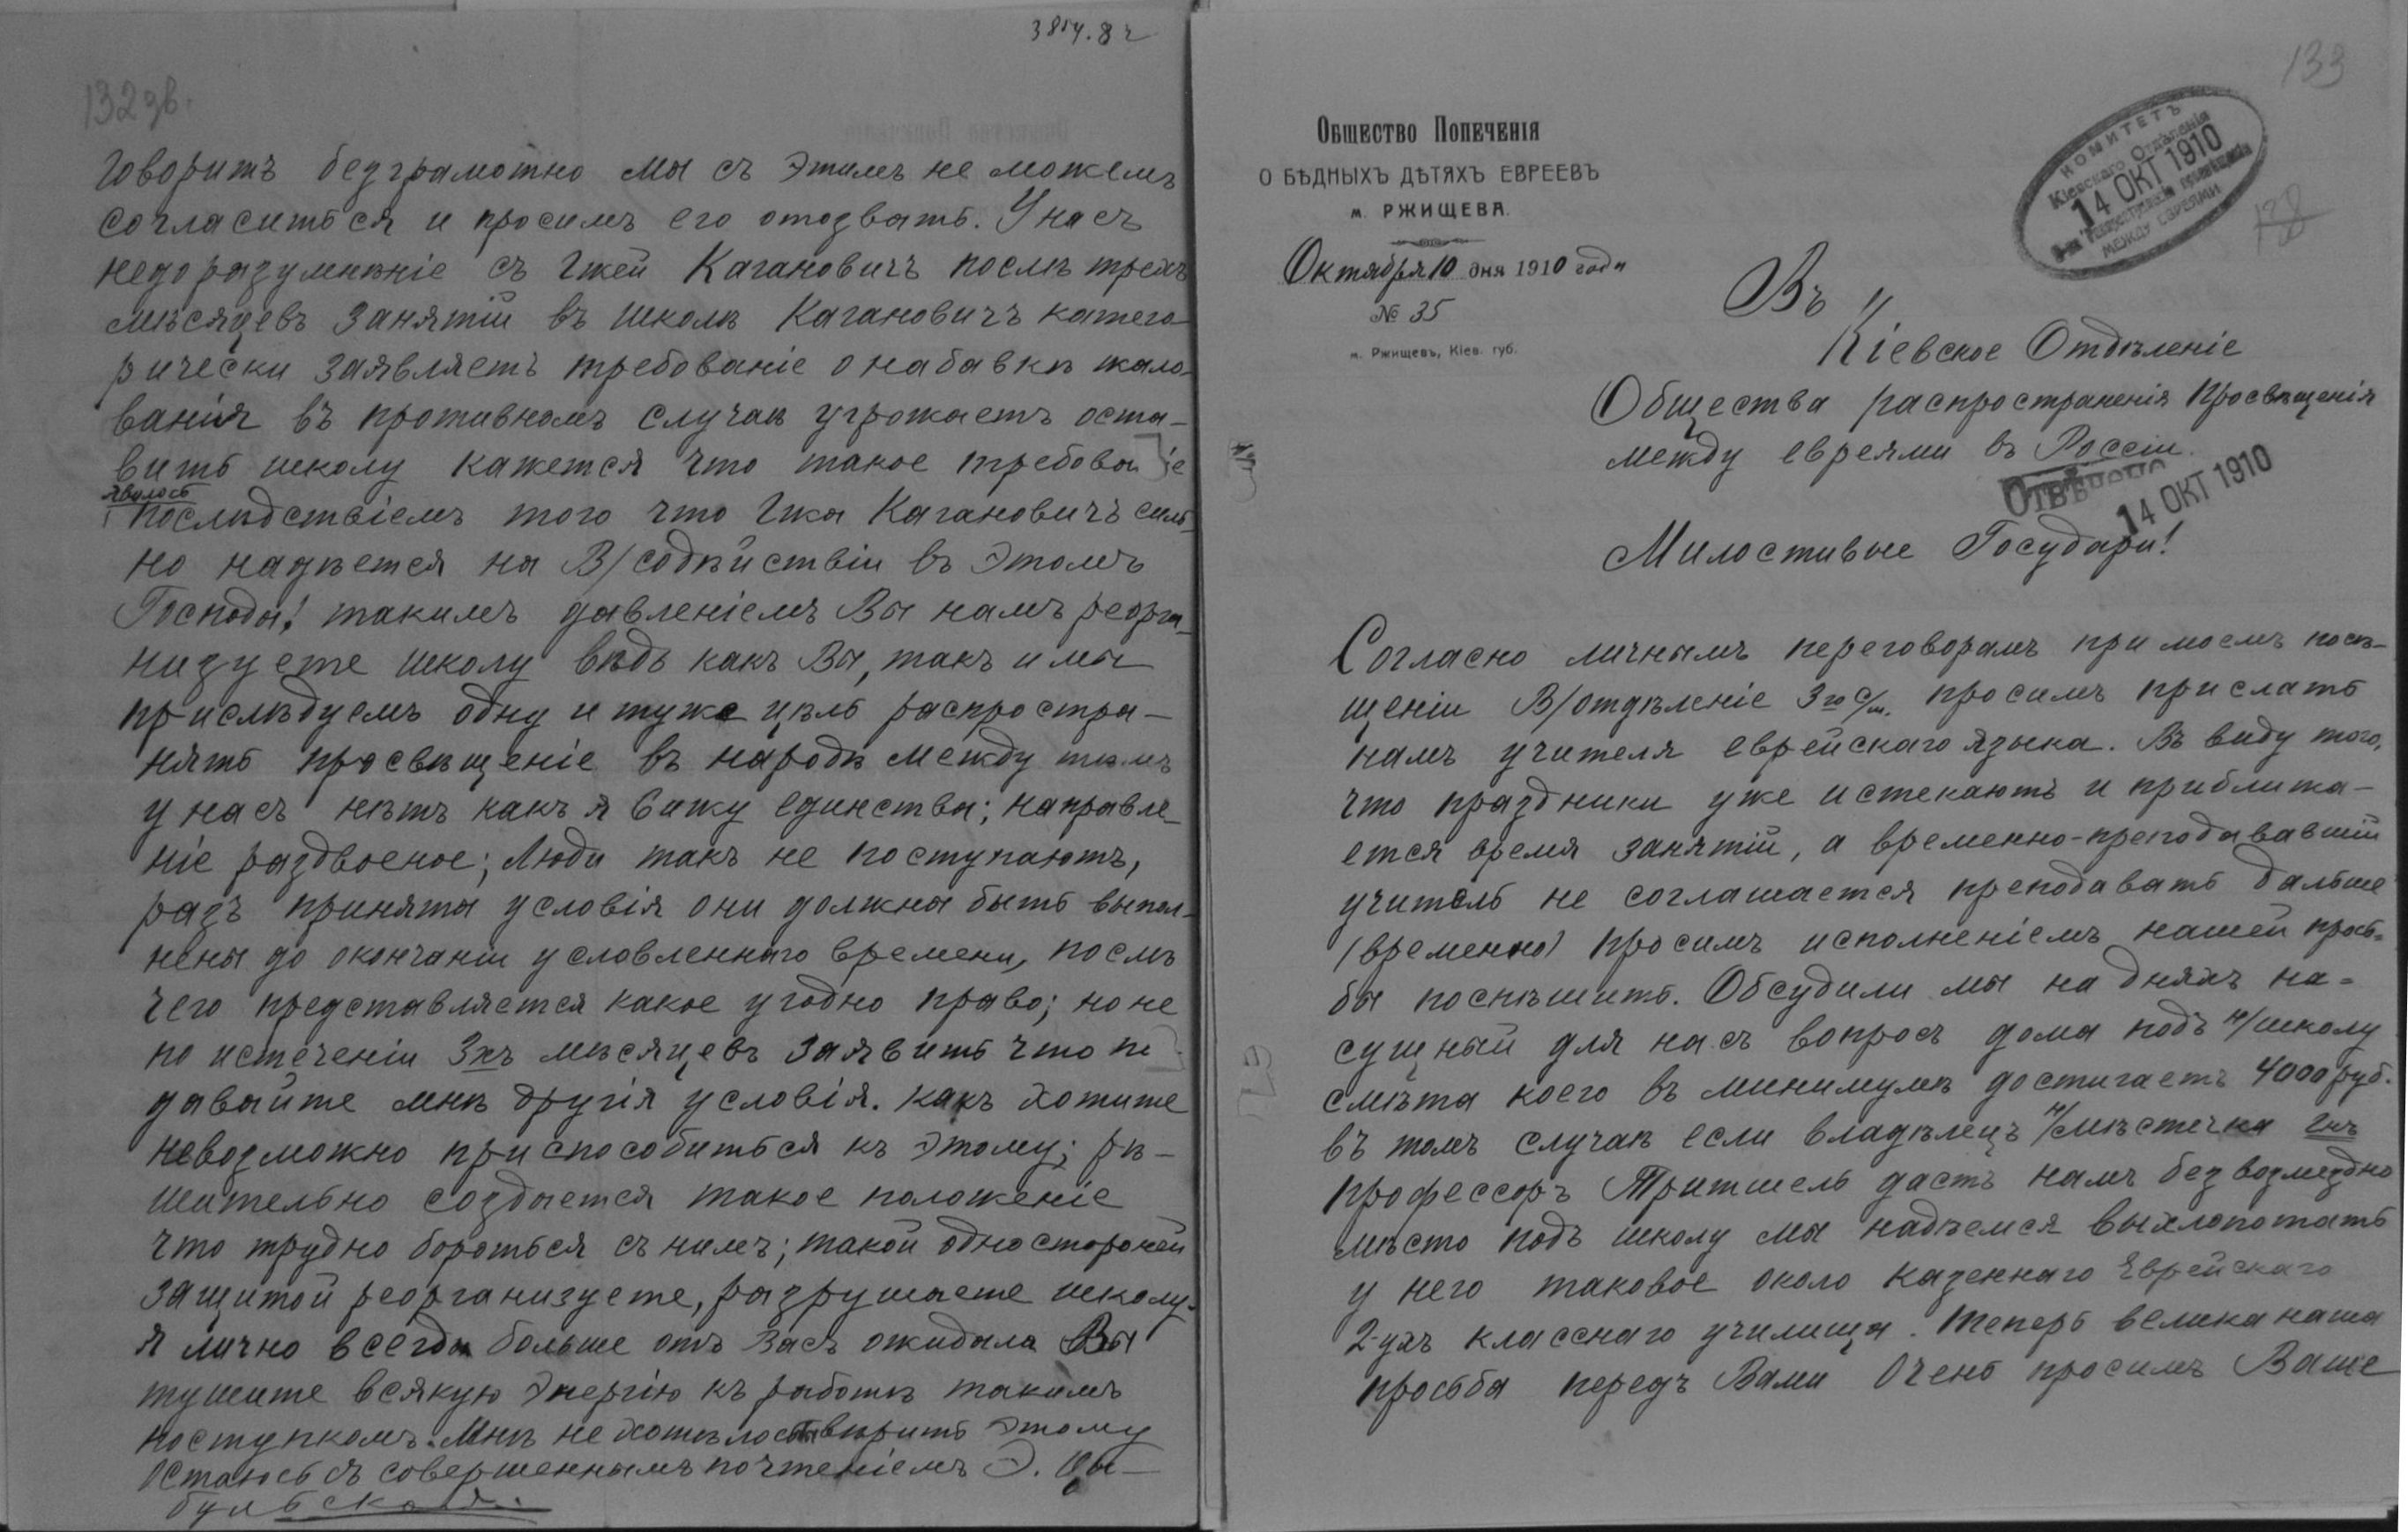 132зв.
говоритъ безграмотно мы съ этимъ не можемъ
согласиться и просимъ его отозвать. У насъ
недоразумѣніе съ Гжей Кагановичъ послѣ трехъ
мѣсяцевъ занятій въ школѣ Кагановичъ катего-
рически заявляетъ требованіе о набавкѣ жало-
ванія въ противномъ случаѣ угрожаетъ оста-
вить школу кажется что такое требован іе
явилось
послѣдствіемъ того что Гжа Кагановичъ силь-
но надѣется на В/содѣйствіи въ этомъ
Господа! такимъ давленіемъ Вы намъ реорга-
низуете школу вѣдь какъ Вы, такъ и мы
прислѣдуемъ одну и туже цѣль распростра-
нять просвѣщеніе въ народѣ между тѣмъ
у насъ нѣтъ какъ я вижу единства; направле-
ніе раздвоеное; Люди такъ не поступаютъ,
разъ приняты условія они должны быть выпол-
нены до окончаніи условленнаго времени, послѣ
чего представляется какое угодно право; но не
по истеченіи 3хъ мѣсяцевъ заявить что
давайте мнѣ другія условія. Какъ хотите
невозможно приспособиться къ этому; рѣ-
шительно создается такое положеніе
что трудно бороться съ нимъ; такой одностороней
защитой реорганизуете, разрушаете школу.
я лично всегда больше отъ Васъ ожидала Вы
тушите всякую энергію къ работѣ такимъ
поступкомъ. Мнѣ не хотѣлось вѣрить этому
Остаюсь съ совершеннымъ почтеніемъ Э. Цы-
бульская.
133
Общество Попеченія
О БѢДНЫХЪ ДѢТЯХЪ ЕВРЕЕВЪ
м. РЖИЩЕВА.
Октября 10 дня 1910 года
№ 35
м. Ржищевъ, Кіев. губ.
КОМИТЕТЪ
Кіевскаго Отдѣленія
14 ОКТ 1910
МЕЖДУ ЕВРЕЯМИ
Въ
Кіевское Отдѣленіе
Общества распространенія Просвѣщенія
между евреями въ Россіи.
14 ОКТ 1910
Милостивые Государи!
Согласно личнымъ переговорамъ при моемъ посѣ-
щеніи В/отдѣленіе 3го с/м. просимъ прислать
намъ учителя еврейскаго языка. Въ виду того,
что праздники уже истекаютъ и приближа-
ется время занятій, а временно-преподававшій
учитель не соглашается преподавать дальше
(временно) просимъ исполненіемъ нашей прось-
бы поспѣшить. Обсудили мы на дняхъ на-
сущный для насъ вопросъ дома подъ н/школу
смѣта коего въ минимумѣ достигаетъ 4000 руб.
въ томъ случаѣ если владѣлецъ н/мѣстечка Гнъ
профессоръ Тритшель дастъ намъ безвозмездно
мѣсто подъ школу мы надѣемся выхлопотать
у него таковое около казеннаго Еврейскаго
2-ухъ класснаго училища. Теперь велика наша
просьба передъ Вами Очень просимъ Ваше